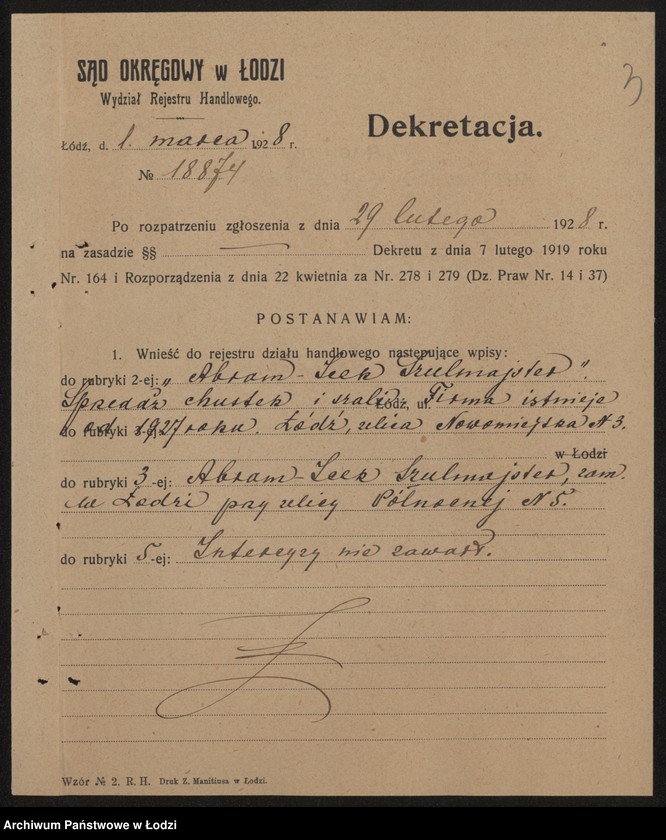 3
SĄD OKRĘGOWY w ŁODZI
Wydział Rejestru Handlowego.
Dekretacja.
Łódź, d. 1. marca 1928 r.
№ 18874
Po rozpatrzeniu zgłoszenia z dnia 29 lutego 1928 r.
na zasadzie §§ — Dekretu z dnia 7 lutego 1919 roku
Nr. 164 i Rozporządzenia z dnia 22 kwietnia za Nr. 278 i 279 (Dz. Praw Nr. 14 i 37)
POSTANAWIAM:
1. Wnieść do rejestru działu handlowego następujące wpisy:
do rubryki 2-ej: „Abram-Icek Szulmajster".
Sprzedaż chustek i szali. Firma istnieje
Łódź, ul.
od 1927 roku. Łódź, ulica Nowomiejska № 3.
do rubryki 3-ej:
w Łodzi
do rubryki 3-ej: Abram-Icek Szulmajster, zam.
w Łodzi przy ulicy Północnej № 5.
do rubryki 5-ej: Intercyzy nie zawarł.
Wzór № 2. R. H. Druk Z. Manitiusa w Łodzi.
Archiwum Państwowe w Łodzi